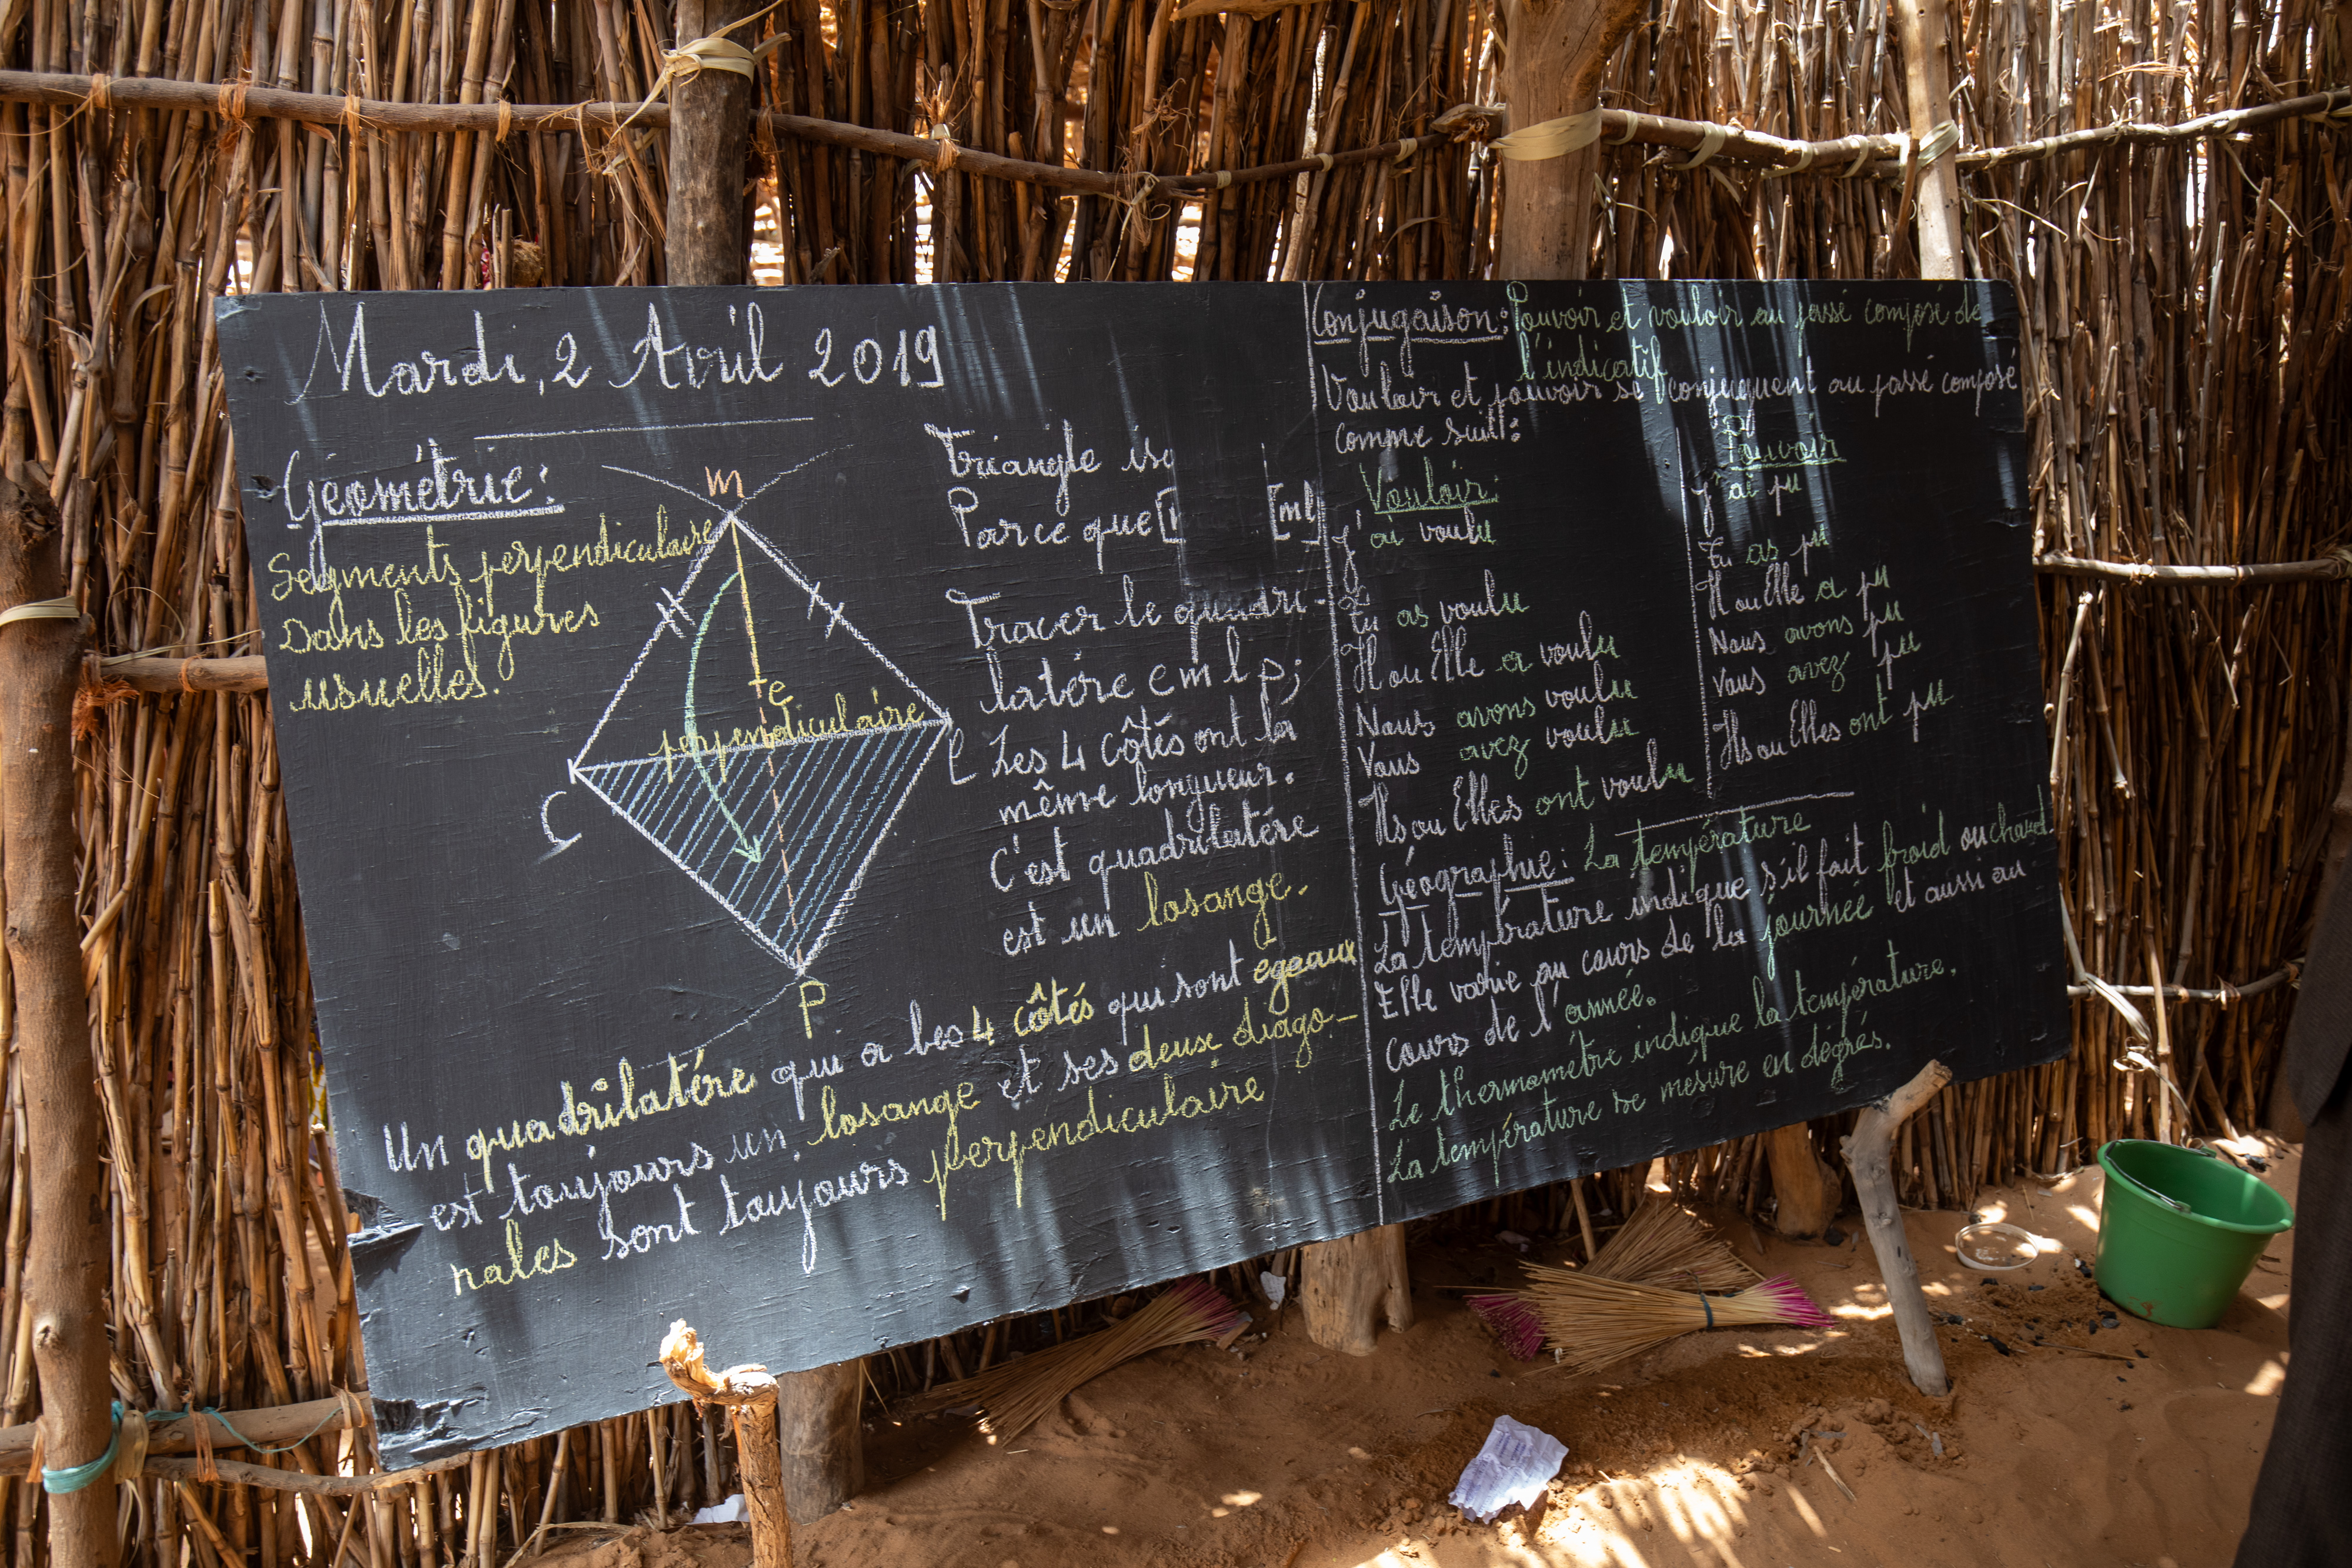 Mardi, 2 Avril 2019
Géométrie:
Segments perpendiculaire
Dans les figures
usuelles.
m
e
perpendiculaire
C
l
P
Triangle
Parce que [ [ml]
Tracer le quadri-
latére c m l p;
Les 4 côtés ont la
même longueur.
C'est quadrilatére
est un losange.
Un quadrilatére qui a les 4 côtés qui sont egeaux
est toujours un losange et ses deux diago-
nales sont toujours perpendiculaire
Conjugaison: Pouvoir et vouloir au passé composé de
l'indicatif
Vouloir et pouvoir se conjuguent au passé composé
comme suit:
Vouloir:
j'ai voulu
Tu as voulu
Il ou Elle a voulu
Nous avons voulu
Vous avez voulu
Ils ou Elles ont voulu
Pouvoir
j'ai pu
Tu as pu
Il ou Elle a pu
Nous avons pu
Vous avez pu
Ils ou Elles ont pu
Géographie: La température
La température indique s'il fait froid ou chaud.
Elle varie au cours de la journée et aussi au
cours de l'année.
Le thermométre indique la température.
La température se mésure en dégrés.